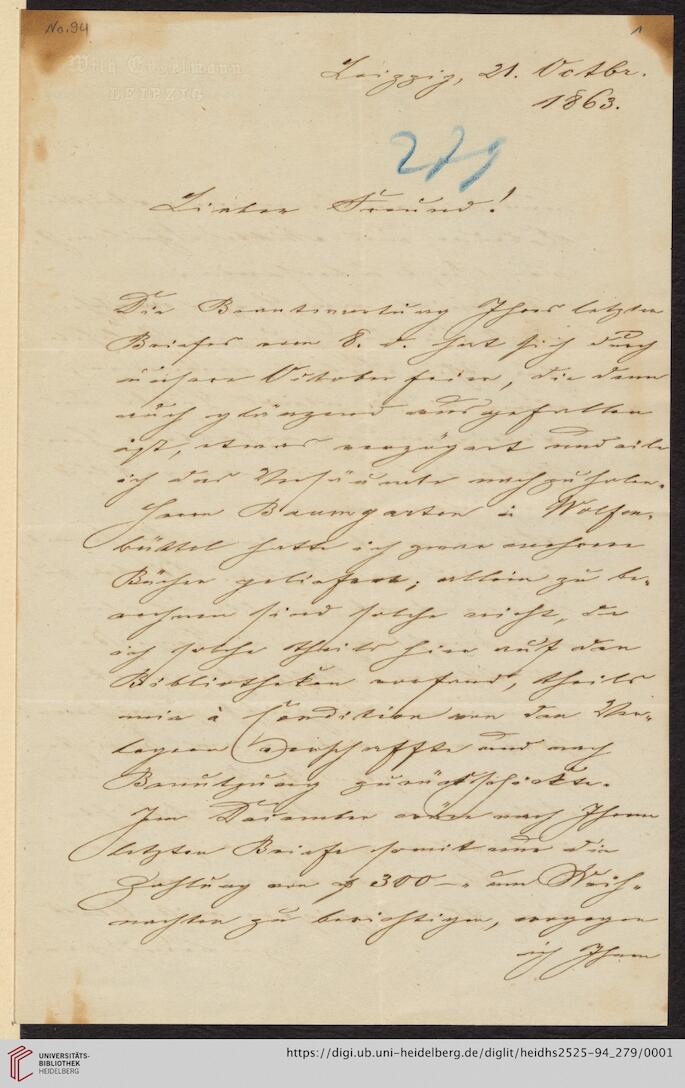 No. 94
1
Wilh. Engelmann
LEIPZIG
Leipzig, 21. Octbr.
1863.
279
Lieber Freund!
Die Beantwortung Ihres letzten
Briefes vom 8. d. hat sich durch
unsere Octoberfeier, die denn
auch glänzend ausgefallen
ist, etwas verzögert und eile
ich das Versäumte nachzuholen.
Herrn Baumgarten in Wolfen-
büttel hatte ich zwar mehrere
Bücher geliefert; allein zu be-
rechnen sind solche nicht, da
ich solche theils hier auf den
Bibliotheken vorfand, theils
mir à Condition von den Ver-
legern verschaffte und nach
Benutzung zurückschickte.
Im December wäre nach Ihrem
letzten Briefe somit nur die
Zahlung von 300 —. um Weih-
nachten zu berichtigen, wogegen
ich Ihnen
UNIVERSITÄTS-
BIBLIOTHEK
HEIDELBERG
https://digi.ub.uni-heidelberg.de/diglit/heidhs2525-94_279/0001